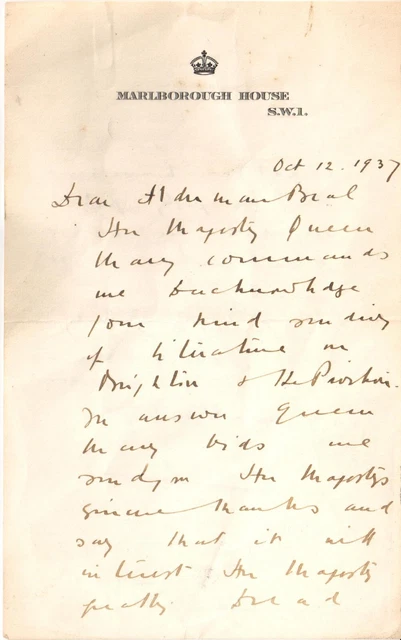 MARLBOROUGH HOUSE
S.W.1.
Oct 12. 1937
Dear Alderman Beal
Her Majesty Queen
Mary commands
me to acknowledge
your kind sending
of literature on
Brighton & the Pavilion.
In answer Queen
Mary bids me
send you Her Majesty's
sincere thanks and
say that it will
interest Her Majesty
greatly to read